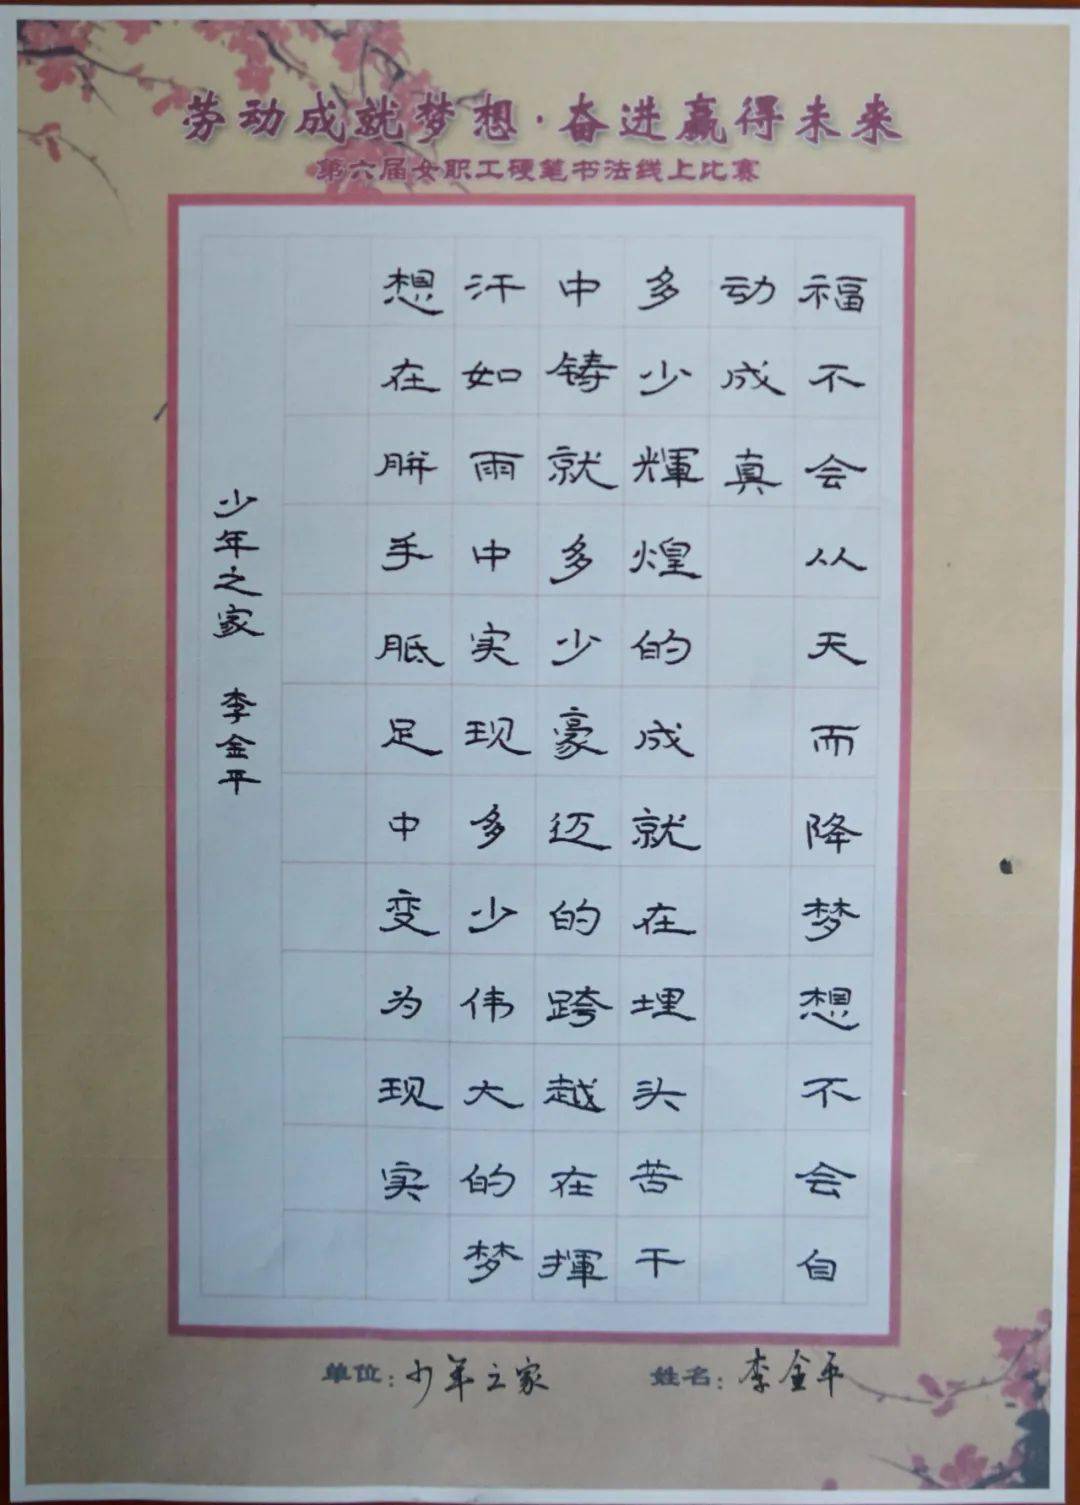 劳动成就梦想·奋进赢得未来
第六届女职工硬笔书法线上比赛
福不会从天而降梦想不会自
动成真
多少輝煌的成就在埋头苦干
中铸就多少豪迈的跨越在揮
汗如雨中实现多少伟大的梦
想在胼手胝足中变为现实
少年之家 李金平
单位:少年之家 姓名:李金平